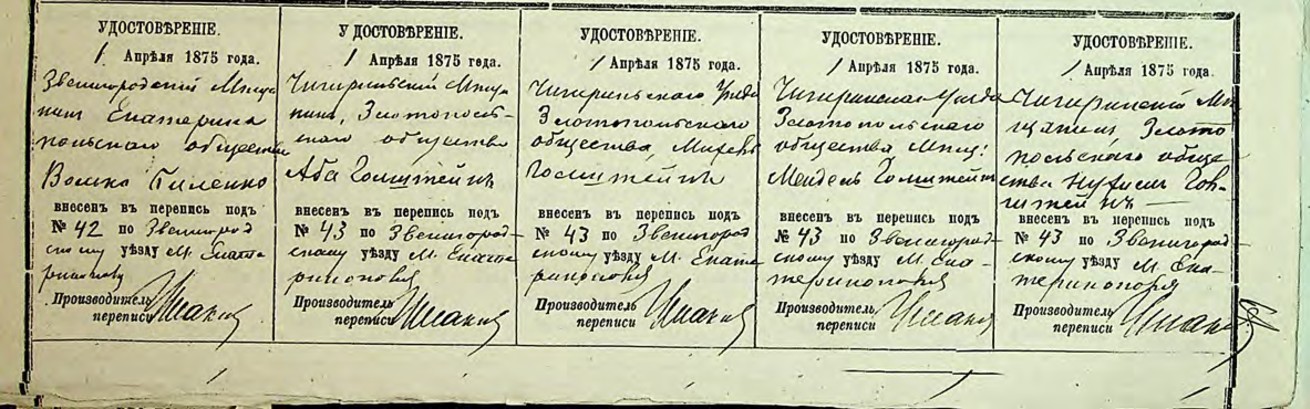 УДОСТОВѢРЕНІЕ.
1 Апрѣля 1875 года.
Звенигородскій Мѣща
нинъ Екатерино
польскаго общества
Волько
внесенъ въ перепись подъ
№ 42 по Звенигород
скому уѣзду М. Екате
ринополю
Производитель
переписи
У ДОСТОВѢРЕНІЕ.
1 Апрѣля 1875 года.
Чигиринскій Мѣща-
нинъ, Златополь-
скаго общества
Аба Голштейнъ
внесенъ въ перепись подъ
№ 43 по Звенигород-
скому уѣзду М. Екате
ринополя
Производитель
переписи
УДОСТОВѢРЕНІЕ.
1 Апрѣля 1875 года.
Чигиринскаго Уѣзда
Златопольскаго
общества,
Голштейнъ
внесенъ въ перепись подъ
№ 43 по Звенигород
скому уѣзду М. Екате
ринополя
Производитель
переписи
УДОСТОВѢРЕНІЕ.
1 Апрѣля 1875 года.
Чигиринскаго Уѣзда
Златопольскаго
общества Мѣщ:
Мендель Голштейнъ
внесенъ въ перепись подъ
№ 43 по Звенигород-
скому уѣзду М. Ека-
теринополя
Производитель
переписи
УДОСТОВѢРЕНІЕ.
1 Апрѣля 1875 года.
Чигиринскій Мѣ
щанинъ Злато
польскаго обще
ства Гол-
штейнъ
внесенъ въ перепись подъ
№ 43 по Звенигород-
скому уѣзду М. Ека-
теринополя
Производитель
переписи